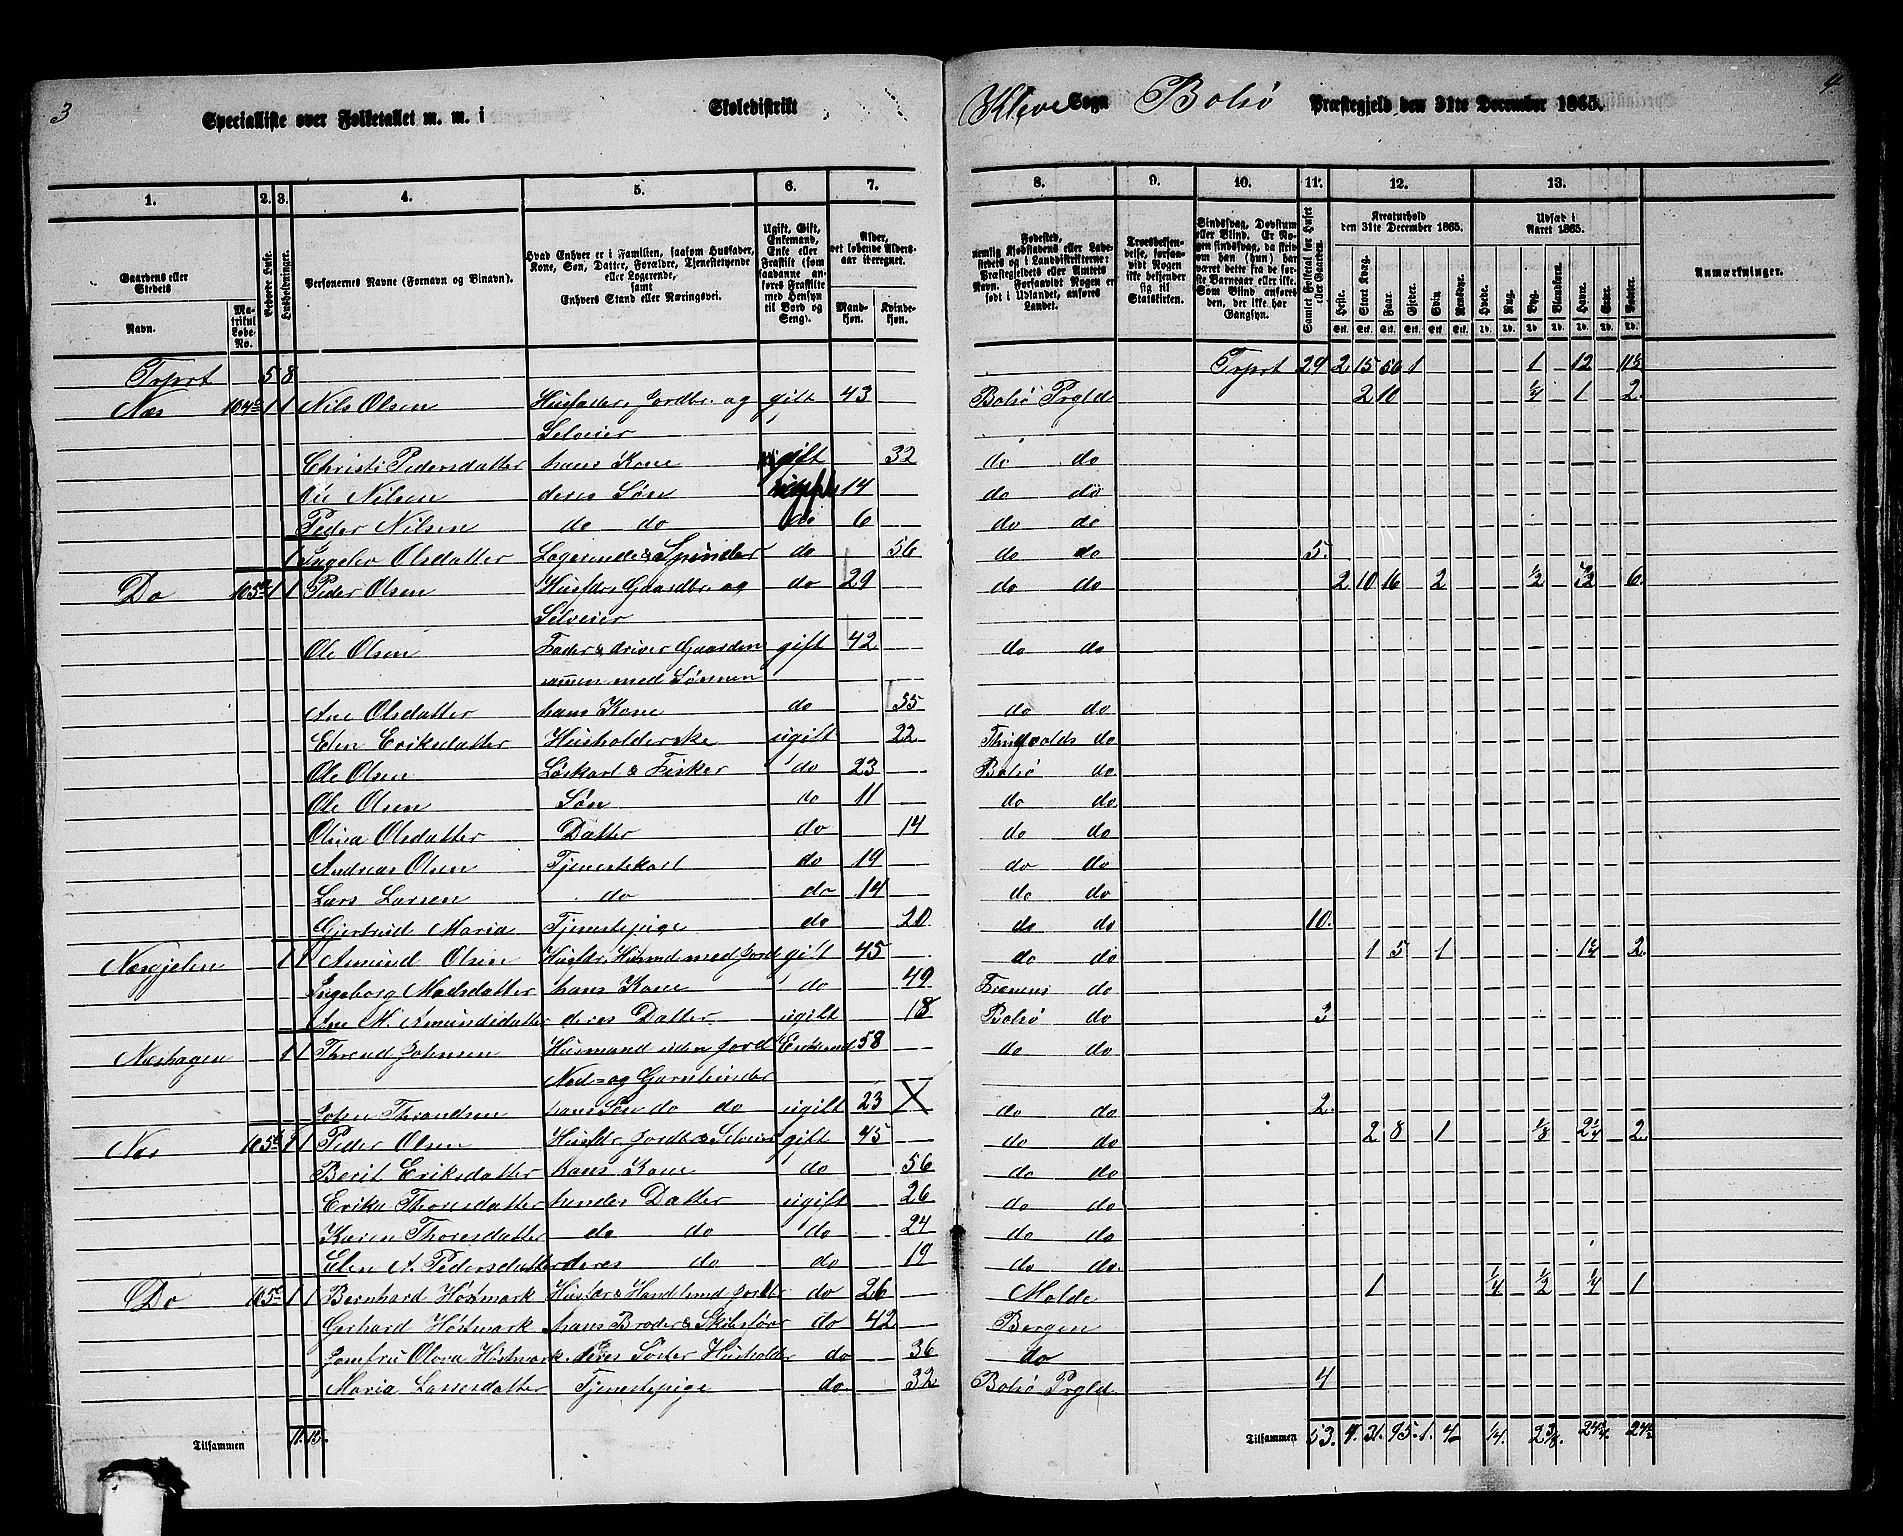 3
Specialliste over Folketallet m. m. i Skoledistrikt Kleve Sogn Bolsø Præstegjeld den 31te December 1865.
4
1. 2. 3. 4. 5. 6. 7. 8. 9. 10. 11. 12. 13.
Gaardens eller Stedets Navn.
Matrikul Løbe-No.
Beboede Huse.
Husholdninger.
Personernes Navne (Fornavn og Binavn).
Hvad Enhver er i Familien, saasom Husfader, Kone, Søn, Datter, Forældre, Tjenestetyende eller Logerende, samt Enhvers Stand eller Næringsvei.
Ugift, Gift, Enkemand, Enke eller Fraskilt (som saadanne anføres Fraskilte med Hensyn til Bord og Seng).
Alder, det løbende Alders-aar iberegnet.
Mandkjøn. Kvindekjøn.
Fødested, nemlig Kjøbstadens eller Ladestedets og i Landdistrikterne: Præstegjeldets eller Amtets Navn. Forsaavidt Nogen er født i Udlandet, anføres Landet.
Troesbekjendelse, forsaavidt Nogen ikke bekjender sig til Statskirken.
Sindssvag, Døvstum eller Blind. Er Nogen sindssvag, da skrives om han (hun) har været dette fra de første Barneaar eller ikke. Som Blind anføres den, der ikke har Gangsyn.
Samlet Folketal for Huset eller Gaarden.
Kreaturhold den 31te December 1865.
Heste. Stort Kvæg. Faar. Gjeder. Svin. Rensdyr.
Udsæd i Aaret 1865.
Hvede. Rug. Byg. Blandkorn. Havre. Erter. Poteter.
Anmærkninger.
Trprt 5 8 Trprt 29 2 15 56 1 1 12
Næs 1 1 Nils Olsen Husfader, Jordbr. og gift 43 Bolsø Prgld 2 10 1/4 1 2
Selveier
Christi Pedersdatter hans Kone gift 32 do do
Ole Nilsen deres Søn ugift 14 do do
Peder Nilsen do do do 6 do do
1 Ingeler Olsdatter Logerende & Spinder do 56 do do 5.
Do 1 1 Peder Olsen Husfdr, Gaardbr. og do 29 do do 2 10 16 2 1/2 6.
Selveier
Ole Olsen Fader & driver Gaarden gift 42 do do
sammen med Sønnen
Ane Olsdatter hans Kone do 55 do do
Elen Eriksdatter Husholderske ugift 22 Thingvolds do
Ole Olsen Løskarl & Fisker do 23 Bolsø do
Ole Olsen Søn do 11 do do
Olina Olsdatter Datter do 14 do do
Andreas Olsen Tjenestekarl do 19 do do
Lars Larsen do do 14 do do
Gjertrud Maria Tjenestepige do 20 do do 10.
Næsgjelen 1 1 Amund Olsen Husfdr, Husmd med Jord gift 45 do do 1 5 1 2
Ingeborg Madsdatter hans Kone do 49 Frænens do
Ane M. Amundsdatter deres Datter ugift 18 Bolsø do 3
Næshagen 1 1 Thrond Johnsen Husmand uden Jord Enkemd 58 do do
Nod- og Garnbinder
John Throndsen hans Søn do do ugift 23 X do do 2.
Næs 1 1 Peder Olsen Husfdr, Jordbr & Selveier gift 45 do do 2 8 1 1/8 2 1/4 2
Berit Eriksdatter hans Kone do 56 do do
Erika Thoresdatter hendes Datter ugift 26 do do
Karen Thoresdatter do do do 24 do do
Elen A. Pedersdatter deres do do 19 do do.
Do 1 1 Bernhard Høstmark Husfdr & Handlend Jordbr do 26 Molde 1 1/4 1/2 1/4 1
Gerhard Høstmark hans Broder & Skibsfører do 42 Bergen
Jomfru Olova Høstmark deres Søster Husholder do 36 do
Maria Larsdatter Tjenestepige do. 32 Bolsø Prgld 4
Tilsammen 11. 13. Tilsammen 53. 4. 31. 95. 1. 4 1/4. 2 3/8.